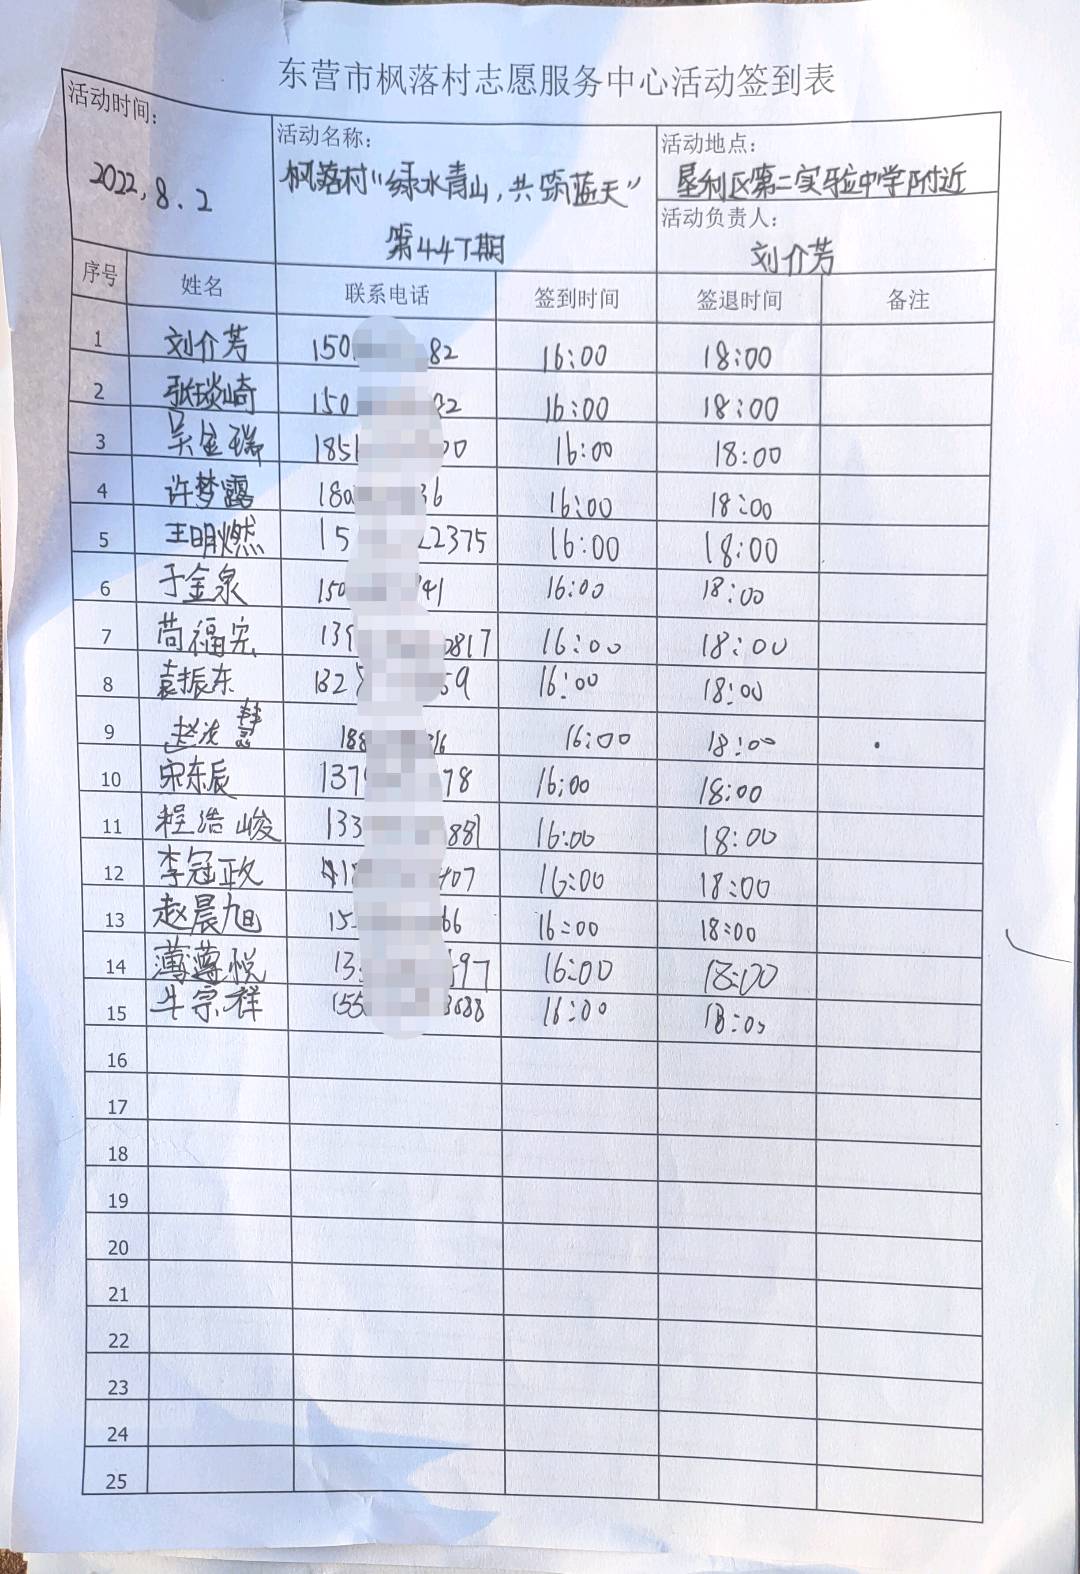 东营市枫落村志愿服务中心活动签到表
活动时间：
2022.8.2
活动名称：
枫落村“绿水青山，共筑蓝天”
第447期
活动地点：
垦利区第二实验中学附近
活动负责人：
刘介芳
序号 姓名 联系电话 签到时间 签退时间 备注
1 刘介芳 150 82 16:00 18:00
2 张琰崎 150 16:00 18:00
3 吴金瑞 185 00 16:00 18:00
4 许梦露 180 36 16:00 18:00
5 王明燃 15 22375 16:00 18:00
6 于金泉 150 41 16:00 18:00
7 苘福宏 139 0817 16:00 18:00
8 袁振东 132 59 16:00 18:00
9 赵 慧 188 16 16:00 18:00
10 宋东辰 137 78 16:00 18:00
11 程浩峻 133 881 16:00 18:00
12 李冠政 07 16:00 18:00
13 赵晨旭 15 66 16:00 18:00
14 薄尊悦 13 97 16:00 18:00
15 牛宗祥 155 3688 16:00 18:00
16
17
18
19
20
21
22
23
24
25